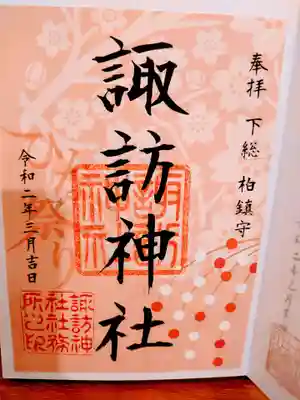 奉拝 下総 柏鎮守
諏訪神社
令和二年三月吉日
諏訪神
社社務
所之印